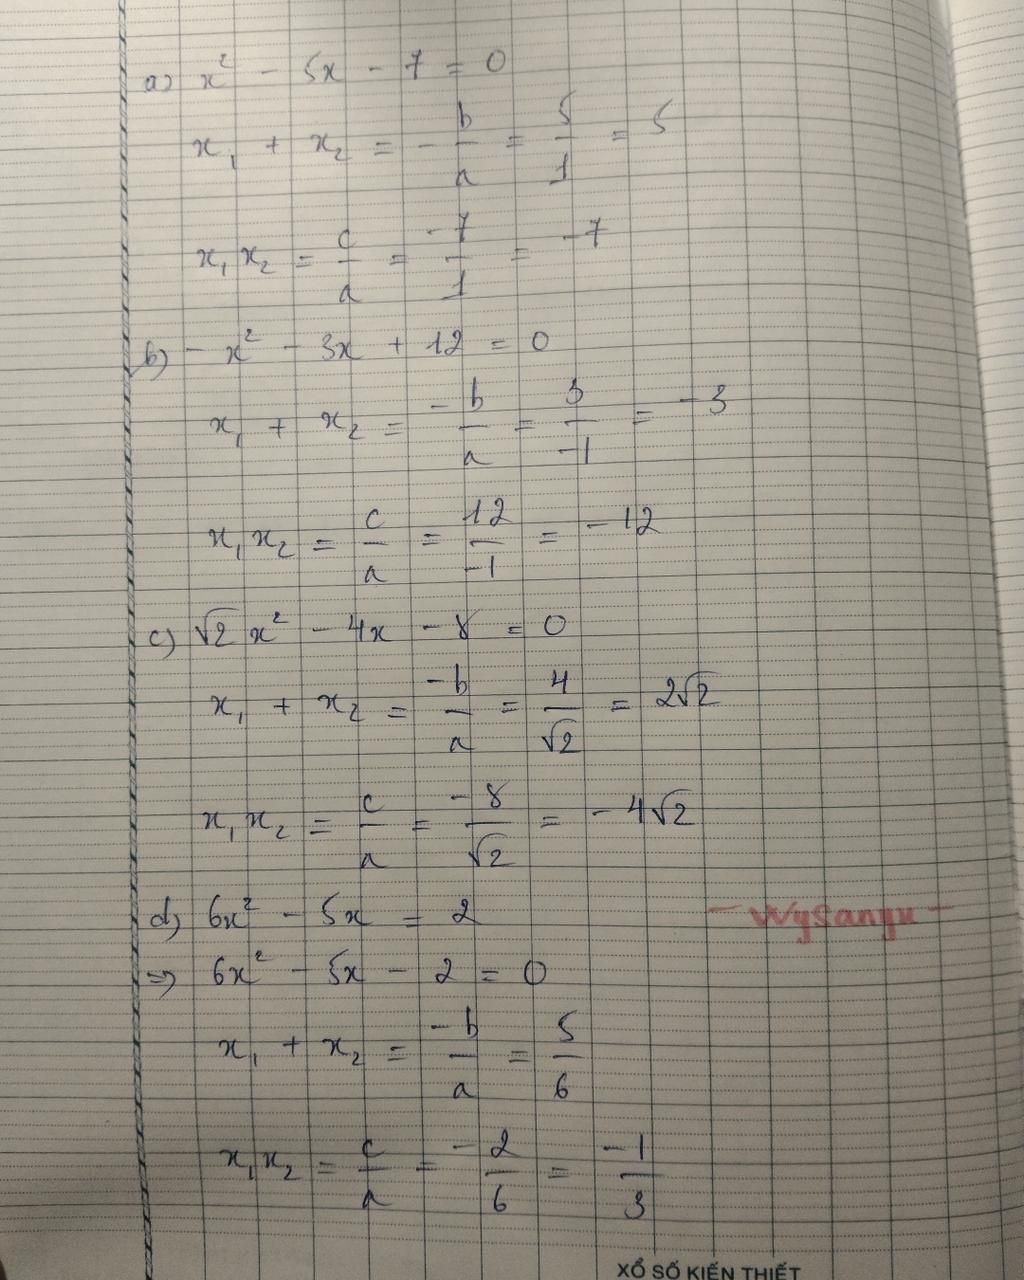 a) x² - 5x - 7 = 0
x₁ + x₂ = - b/a = 5/1 = 5
x₁x₂ = c/a = -7/1 = -7
b) - x² - 3x + 12 = 0
x₁ + x₂ = -b/a = 3/-1 = -3
x₁x₂ = c/a = 12/-1 = -12
c) √2 x² - 4x - 8 = 0
x₁ + x₂ = -b/a = 4/√2 = 2√2
x₁x₂ = c/a = -8/√2 = -4√2
d) 6x² - 5x = 2
- Wysanyu -
=> 6x² - 5x - 2 = 0
x₁ + x₂ = -b/a = 5/6
x₁x₂ = c/a = -2/6 = -1/3
XỔ SỐ KIẾN THIẾT